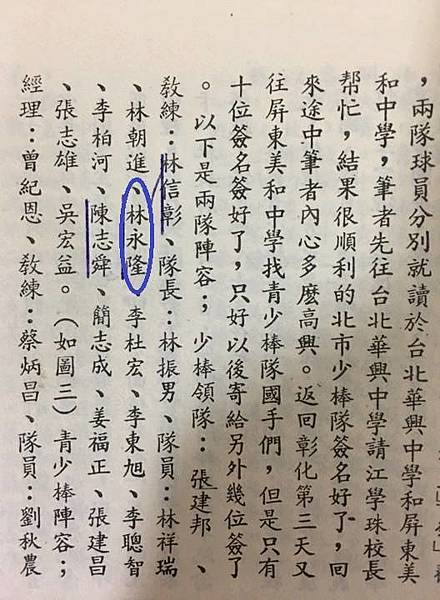 ，兩隊球員分別就讀於台北華興中學和屏東美
和中學，筆者先往台北華興中學請江學珠校長
帮忙，結果很順利的北市少棒隊簽名好了，回
來途中筆者內心多麼高興。返回彰化第三天又
往屏東美和中學找青少棒隊國手們，但是只有
十位簽名簽好了，只好以後寄給另外幾位簽了
。以下是兩隊陣容；少棒領隊：張建邦、
教練：林信彰、隊長：林振男、隊員：林祥瑞
、林朝進、林永隆、李杜宏、李東旭、李聰智
、李柏河、陳志舜、簡志成、姜福正、張建昌
、張志雄、吳宏益。（如圖三）青少棒陣容；
經理：曾紀恩、教練：蔡炳昌、隊員：劉秋農